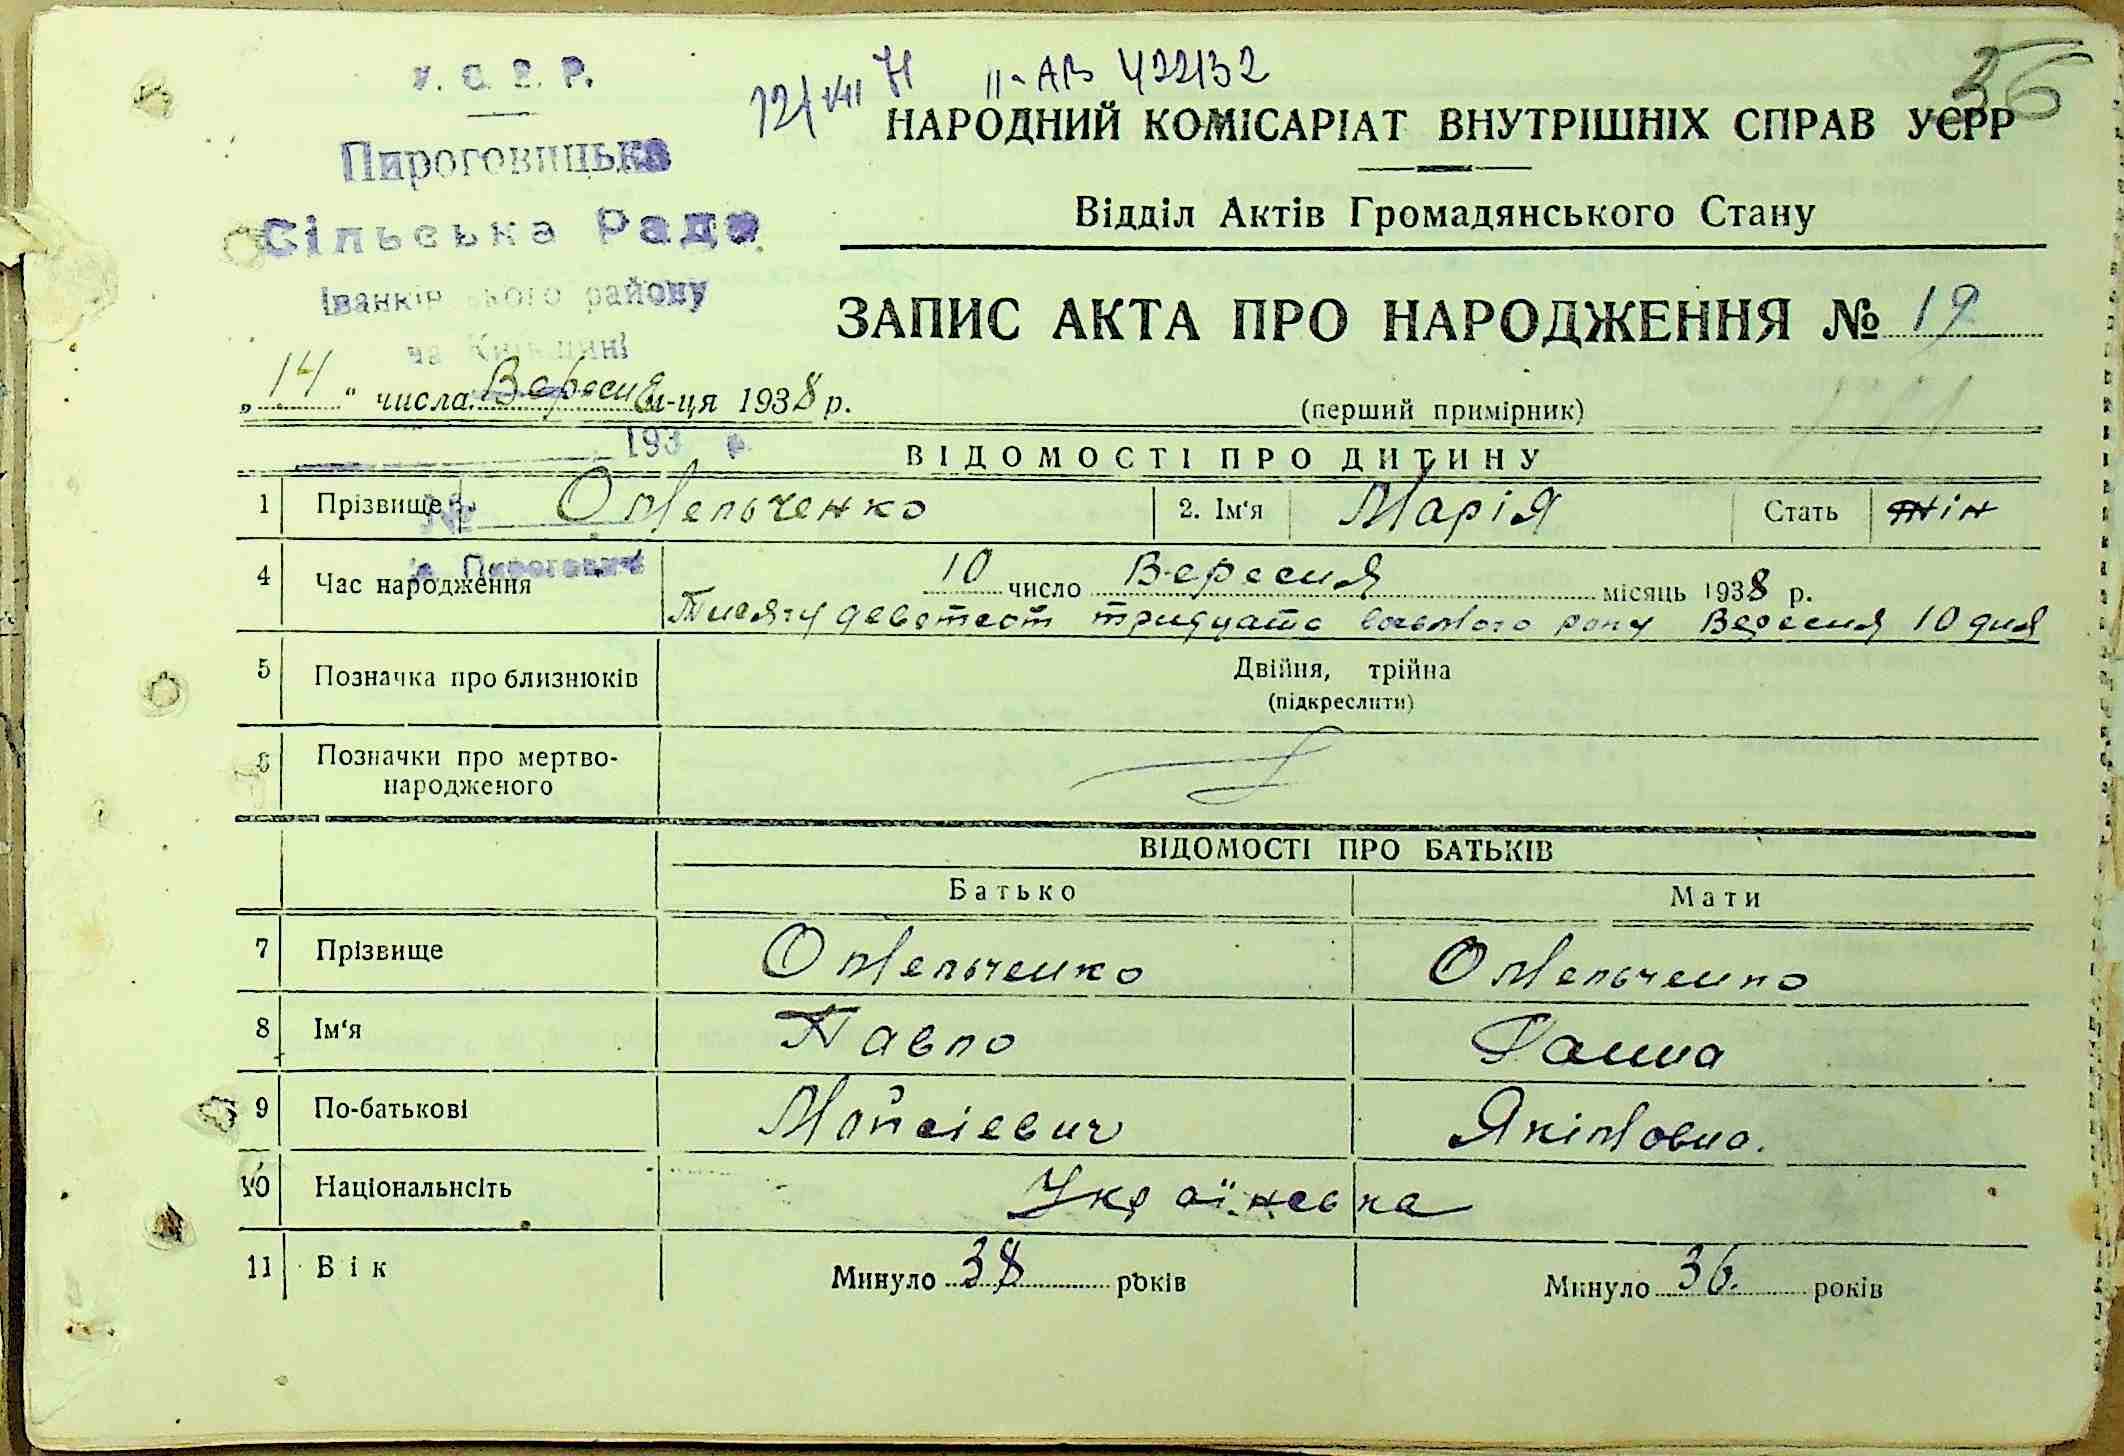 У. С. Р. Р.
Пироговицька
Сільська Рада
Іванків ького району
на Київщині
193 р.
№
с. Пироговичі
12/VII 71 II-АВ 422132
36
НАРОДНИЙ КОМІСАРІАТ ВНУТРІШНІХ СПРАВ УСРР
Відділ Актів Громадянського Стану
ЗАПИС АКТА ПРО НАРОДЖЕННЯ № 19
„14“ числа Вересня м-ця 1938 р.
(перший примірник)
ВІДОМОСТІ ПРО ДИТИНУ
1 Прізвище Омельченко 2. Ім'я Марія Стать жін
4 Час народження 10 число Вересня місяць 1938 р.
Тисячу девятсот тридцать восьмого року Вересня 10 дня
5 Позначка про близнюків Двійня, трійна
(підкреслити)
6 Позначки про мертво-
народженого
ВІДОМОСТІ ПРО БАТЬКІВ
Батько Мати
7 Прізвище Омельченко Омельченко
8 Ім'я Павло Ганна
9 По-батькові Мойсієвич Якімовна.
10 Національнсіть Українська
11 Вік Минуло 38 років Минуло 36. років